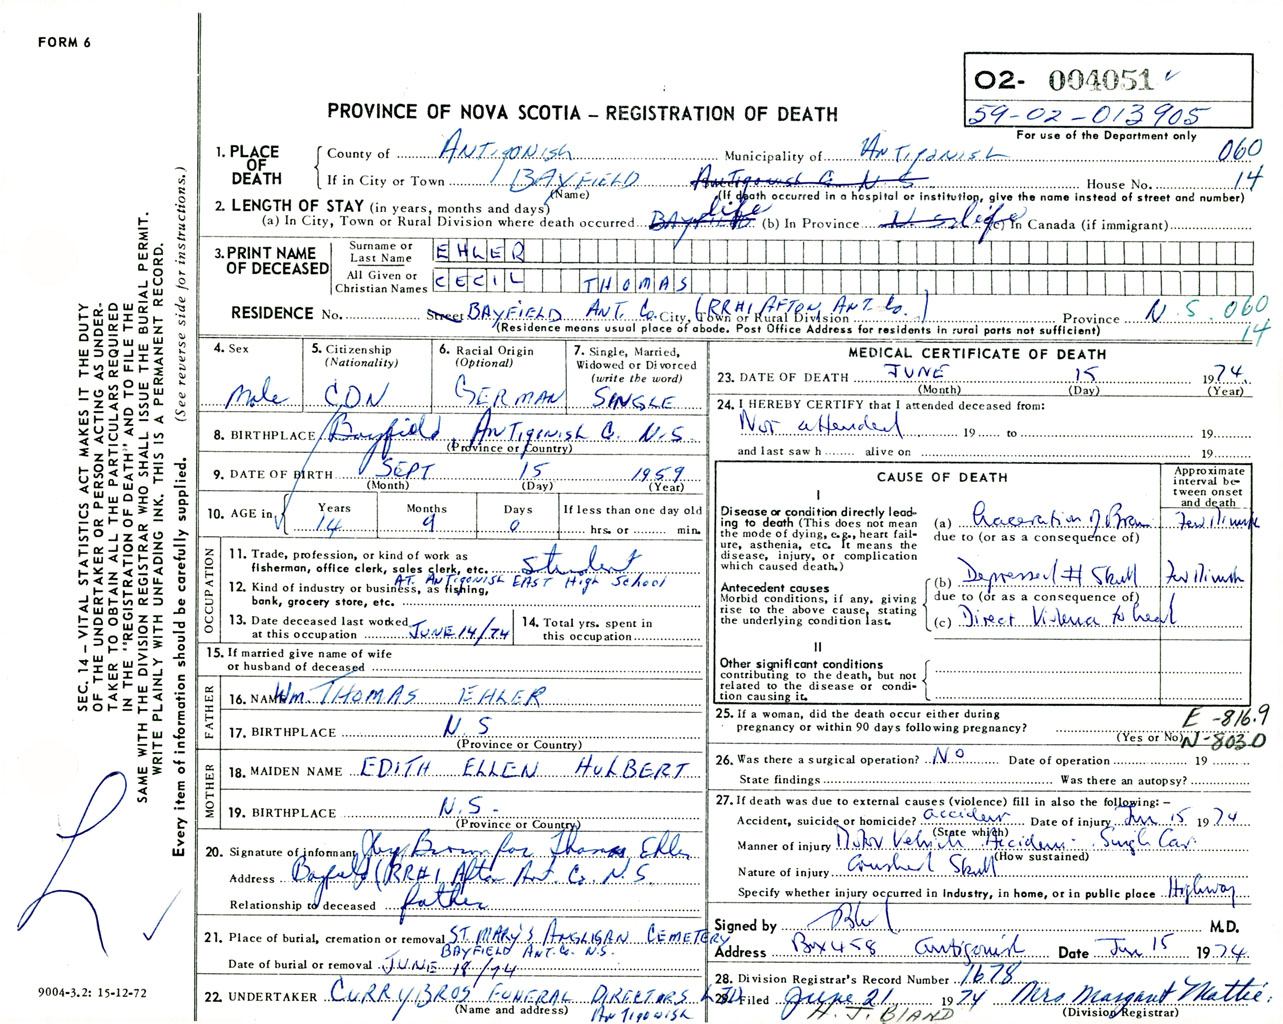 FORM 6
O2- 004051
59-02-013905
For use of the Department only
PROVINCE OF NOVA SCOTIA – REGISTRATION OF DEATH
1. PLACE OF DEATH
County of ANTIGONISH Municipality of ANTIGONISH 060
If in City or Town BAYFIELD Antigonish Co. N S House No. 14
(Name) (If death occurred in a hospital or institution, give the name instead of street and number)
2. LENGTH OF STAY (in years, months and days)
(a) In City, Town or Rural Division where death occurred BAYFIELD life (b) In Province N S life (c) In Canada (if immigrant)
3. PRINT NAME OF DECEASED
Surname or Last Name EHLER
All Given or Christian Names CECIL THOMAS
RESIDENCE No. Street BAYFIELD ANT. Co. City, Town or Rural Division (RR#1 AFTON, ANT. Co.) Province N.S. 060
(Residence means usual place of abode. Post Office Address for residents in rural parts not sufficient) 14
4. Sex Male
5. Citizenship (Nationality) CDN
6. Racial Origin (Optional) GERMAN
7. Single, Married, Widowed or Divorced (write the word) SINGLE
8. BIRTHPLACE Bayfield, ANTIGONISH Co. N.S.
(Province or Country)
9. DATE OF BIRTH SEPT 15 1959
(Month) (Day) (Year)
10. AGE in Years 14 Months 9 Days 0 If less than one day old hrs. or min.
OCCUPATION
11. Trade, profession, or kind of work as fisherman, office clerk, sales clerk, etc. student
12. Kind of industry or business, as fishing, bank, grocery store, etc. AT. ANTIGONISH EAST High School
13. Date deceased last worked at this occupation JUNE 14/74
14. Total yrs. spent in this occupation
15. If married give name of wife or husband of deceased
FATHER
16. NAME Wm. THOMAS EHLER
17. BIRTHPLACE N.S
(Province or Country)
MOTHER
18. MAIDEN NAME EDITH ELLEN HULBERT
19. BIRTHPLACE N.S.
(Province or Country)
20. Signature of informant Brown for Thomas Ehler
Address Bayfield (RR#1 Afton Ant. Co. N.S.
Relationship to deceased father
21. Place of burial, cremation or removal ST. MARY'S ANGLIGAN CEMETERY
BAYFIELD ANT. Co. N.S.
Date of burial or removal JUNE 18/74
22. UNDERTAKER CURRY BROS FUNERAL DIRECTORS LTD
(Name and address) ANTIGONISH
MEDICAL CERTIFICATE OF DEATH
23. DATE OF DEATH JUNE 15 1974
(Month) (Day) (Year)
24. I HEREBY CERTIFY that I attended deceased from:
Not attended 19 to 19
and last saw h alive on 19
CAUSE OF DEATH
Approximate interval between onset and death
I
Disease or condition directly leading to death (This does not mean the mode of dying, e.g., heart failure, asthenia, etc. It means the disease, injury, or complication which caused death.)
(a) Laceration of Brain Few Minutes
due to (or as a consequence of)
Antecedent causes
Morbid conditions, if any, giving rise to the above cause, stating the underlying condition last.
(b) Depressed # Skull Few Minutes
due to (or as a consequence of)
(c) Direct Violence to head
II
Other significant conditions contributing to the death, but not related to the disease or condition causing it.
25. If a woman, did the death occur either during pregnancy or within 90 days following pregnancy? (Yes or No)
E -816.9
N-803.0
26. Was there a surgical operation? No Date of operation 19
State findings Was there an autopsy?
27. If death was due to external causes (violence) fill in also the following: –
Accident, suicide or homicide? accident Date of injury Jun 15 1974
(State which)
Manner of injury Motor Vehicle Accident - Single Car
(How sustained)
Nature of injury Crushed Skull
Specify whether injury occurred in industry, in home, or in public place Highway
Signed by M.D.
Address Box 458 Antigonish Date Jun 15 1974
28. Division Registrar's Record Number 1678
29. Filed June 21 1974 Mrs Margaret Mattie
H. J. BLAND (Division Registrar)
SEC. 14 – VITAL STATISTICS ACT MAKES IT THE DUTY
OF THE UNDERTAKER OR PERSON ACTING AS UNDER-
TAKER TO OBTAIN ALL THE PARTICULARS REQUIRED
IN THE "REGISTRATION OF DEATH" AND TO FILE THE
SAME WITH THE DIVISION REGISTRAR WHO SHALL ISSUE THE BURIAL PERMIT.
WRITE PLAINLY WITH UNFADING INK. THIS IS A PERMANENT RECORD.
Every item of information should be carefully supplied. (See reverse side for instructions.)
9004-3.2: 15-12-72